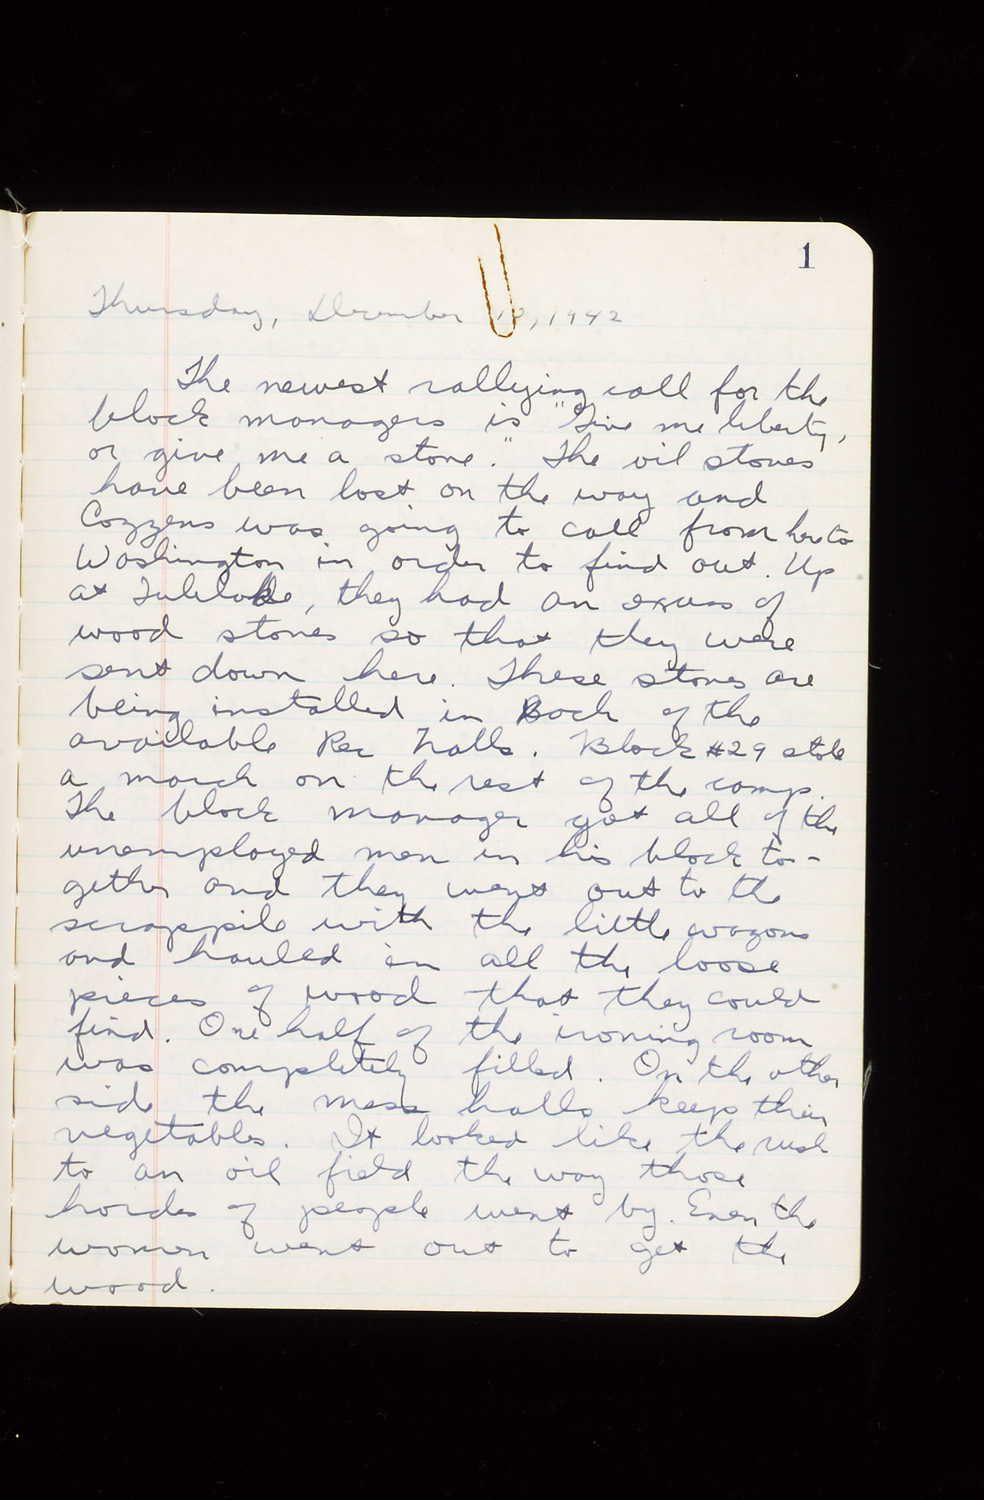 1
Thursday, December 10, 1942
The newest rallying call for the
block managers is "Give me liberty,
or give me a stove." The oil stoves
have been lost on the way and
Cozzens was going to call from here to
Washington in order to find out. Up
at Tulelake, they had an excess of
wood stoves so that they were
sent down here. These stoves are
being installed in Each of the
available Rec halls. Block #29 stole
a march on the rest of the camp.
The block manager got all of the
unemployed men in his block to-
gether and they went out to the
scrappile with the little wagons
and hauled in all the loose
pieces of wood that they could
find. One half of the ironing room
was completely filled. On the other
side the mess halls keep their
vegetables. It looked like the rush
to an oil field the way those
hordes of people went by. Even the
women went out to get the
wood.